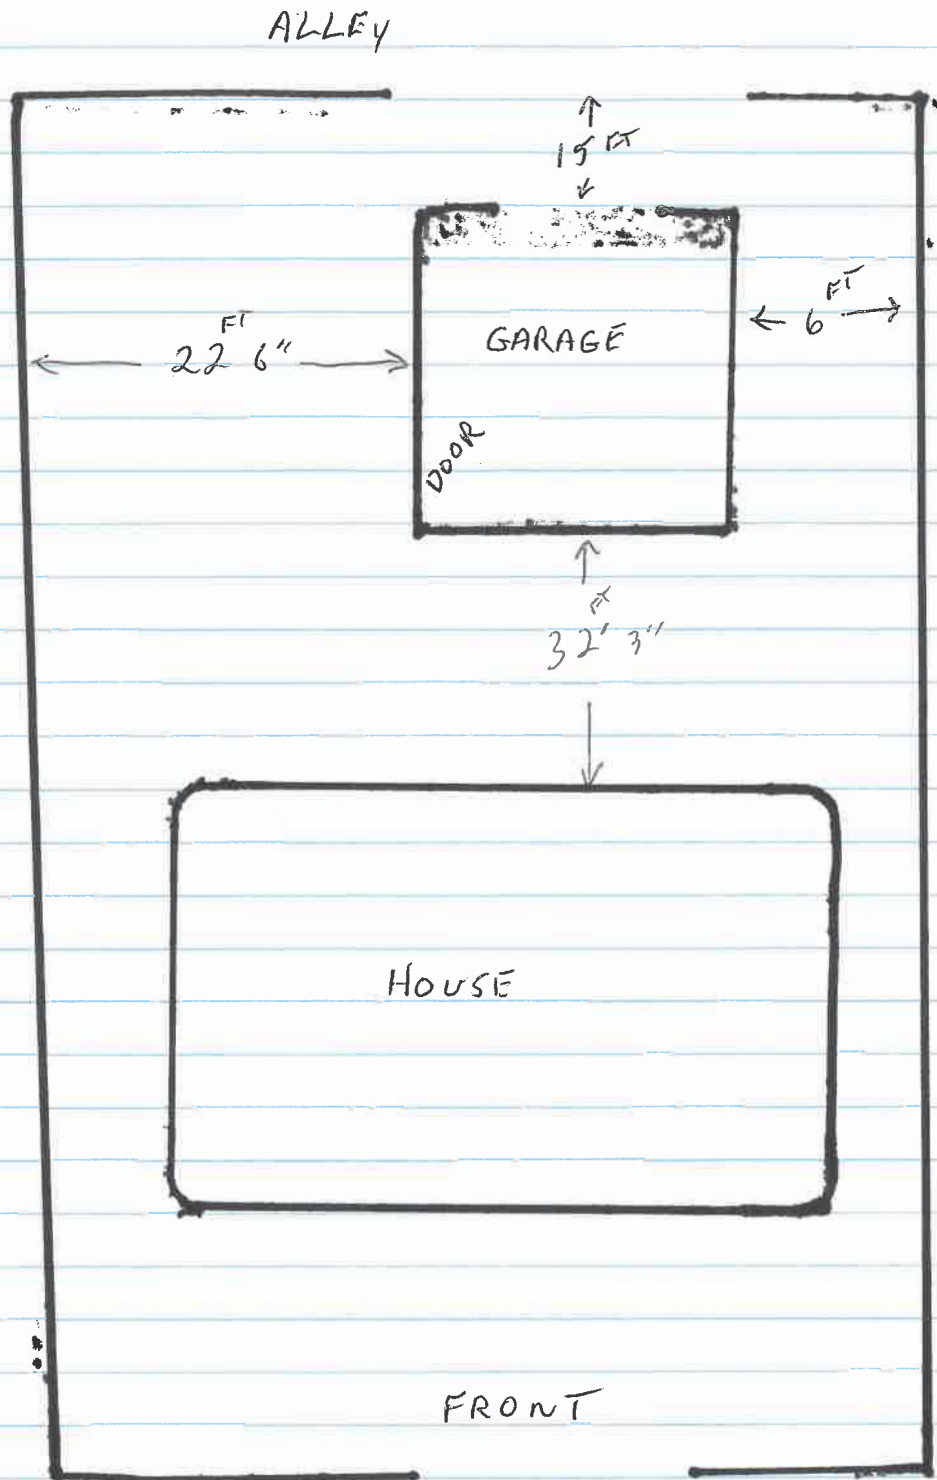 ALLEY
15 FT
6 FT
GARAGE
22 FT 6"
DOOR
32' FT 3"
HOUSE
FRONT